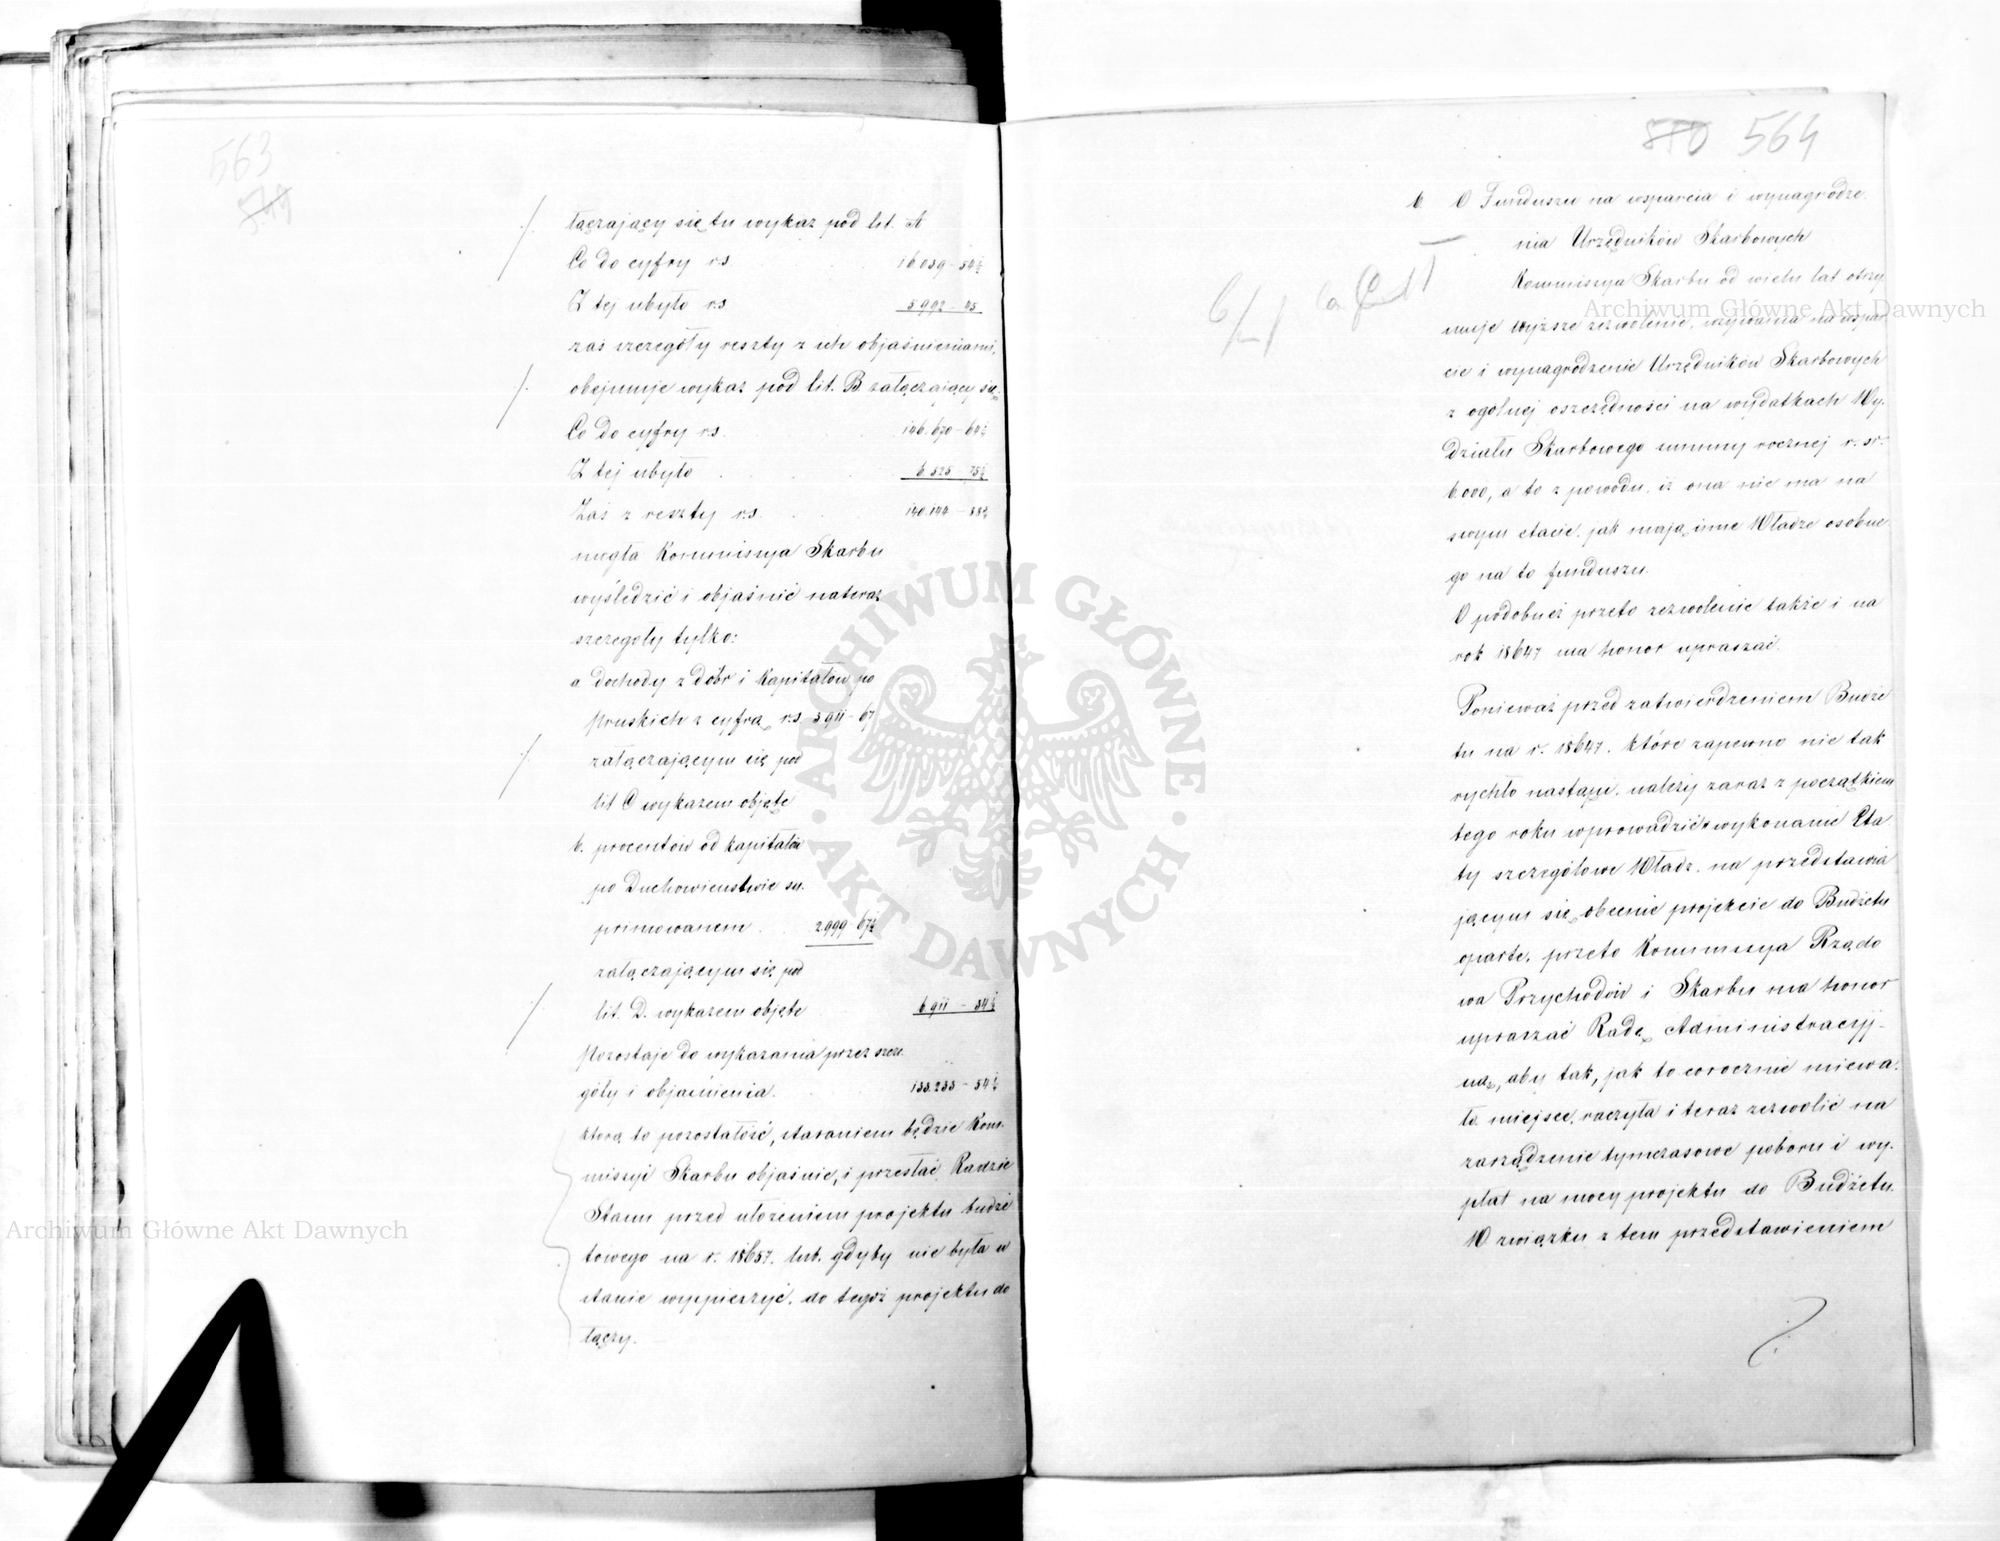 563
łączający się tu wykaz pod lit. A
Co do cyfry rs. 16.039 - 54½
Z tej ubyło rs 5992 - 45
zaś szczegóły reszty z ich objaśnieniami,
obejmuje wykaz pod lit. B załączający się.
Co do cyfry rs. 146.670 - 64½
Z tej ubyło 6.525 - 75½
Zaś z reszty rs. 140.144 -
mogła Kommissya Skarbu
wyśledzić i objaśnić nateraz
szczegóły tylko:
a dochody z dóbr i kapitałów po
pruskich z cyfrą rs 3.911 - 67
załączającym się pod
lit C wykazem objęte
b. procentów od kapitałów
po Duchowieństwie su.
primowanem 2999 67½
załączającym się pod
lit. D. wykazem objęte 6.911 - 34½
Pozostaje do wykazania przez szcze.
góły i objaśnienia. 133.233 - 54½
którą to pozostałość, staraniem będzie Kom.
missyi Skarbu objaśnić, i przesłać Radzie
Stanu przed ułożeniem projektu budże
towego na r. 1865. lub. gdyby nie była w
stanie wyspieszyć, do tegoż projektu do
łączy.
564
6 O Funduszu na wsparcia i wynagrodze.
nia Urzędników Skarbowych
Kommissya Skarbu od wielu lat otrzy
muje wyższe zezwolenie, używania na wspar
cie i wynagrodzenie Urzędników Skarbowych
z ogólnej oszczędności na wydatkach Wy.
działu Skarbowego summy rocznej r. sr.
6.000, a to z powodu, iż ona nie ma na
swym etacie, jak mają inne Władze osobne
go na to funduszu.
O podobneż przeto zezwolenie także i na
rok 1864 ma honor upraszać.
Ponieważ przed zatwierdzeniem Budże
tu na r. 1864. które zapewno nie tak
rychło nastąpi, należy zaraz z początkiem
tego roku wprowadzić w wykonanie Eta
ty szczegółowe Władz, na przedstawia
jącym się obecnie projekcie do Budżetu
oparte, przeto Kommissya Rządo
wa Przychodów i Skarbu ma honor
upraszać Radę Administracyj-
ną, aby tak, jak to corocznie miewa.
ło miejsce, raczyła i teraz zezwolić na
zarządzenie tymczasowe poboru i wy.
płat na mocy projektu do Budżetu.
W związku z tem przedstawieniem
Archiwum Główne Akt Dawnych
Archiwum Główne Akt Dawnych
ARCHIWUM GŁÓWNE AKT DAWNYCH